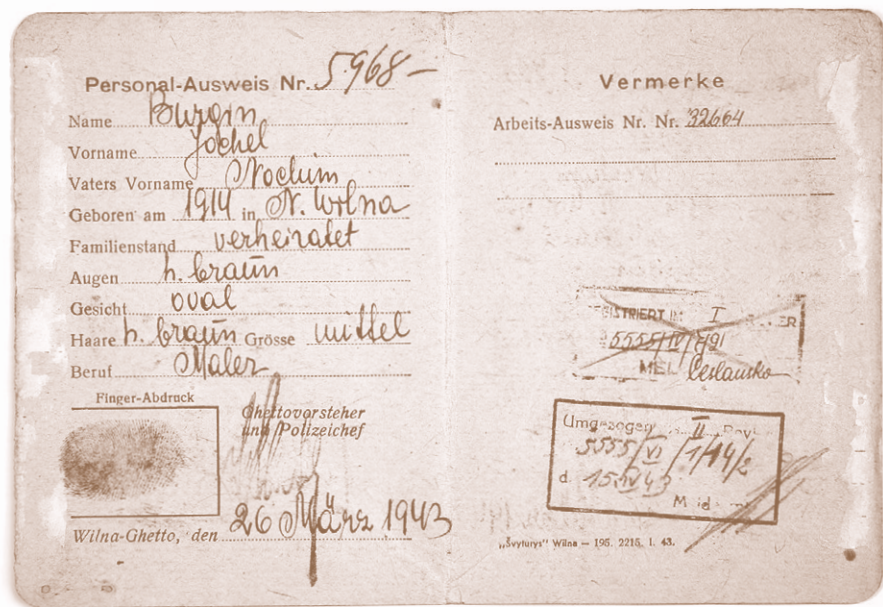 Personal-Ausweis Nr. 5968-
Name Burgin
Vorname Jochel
Vaters Vorname Nochim
Geboren am 1914 in N. Wilna
Familienstand verheiratet
Augen h. braun
Gesicht oval
Haare h. braun Grösse mittel
Beruf Maler
Finger-Abdruck
Ghettovorsteher
und Polizeichef
Wilna-Ghetto, den 26 März 1943
Vermerke
Arbeits-Ausweis Nr. Nr. 32664
I
MEL
Umgezogen II
5555/VI/1/14/2
d. 15.IV 43
"Švyturys" Wilna — 195. 2215. 1. 43.